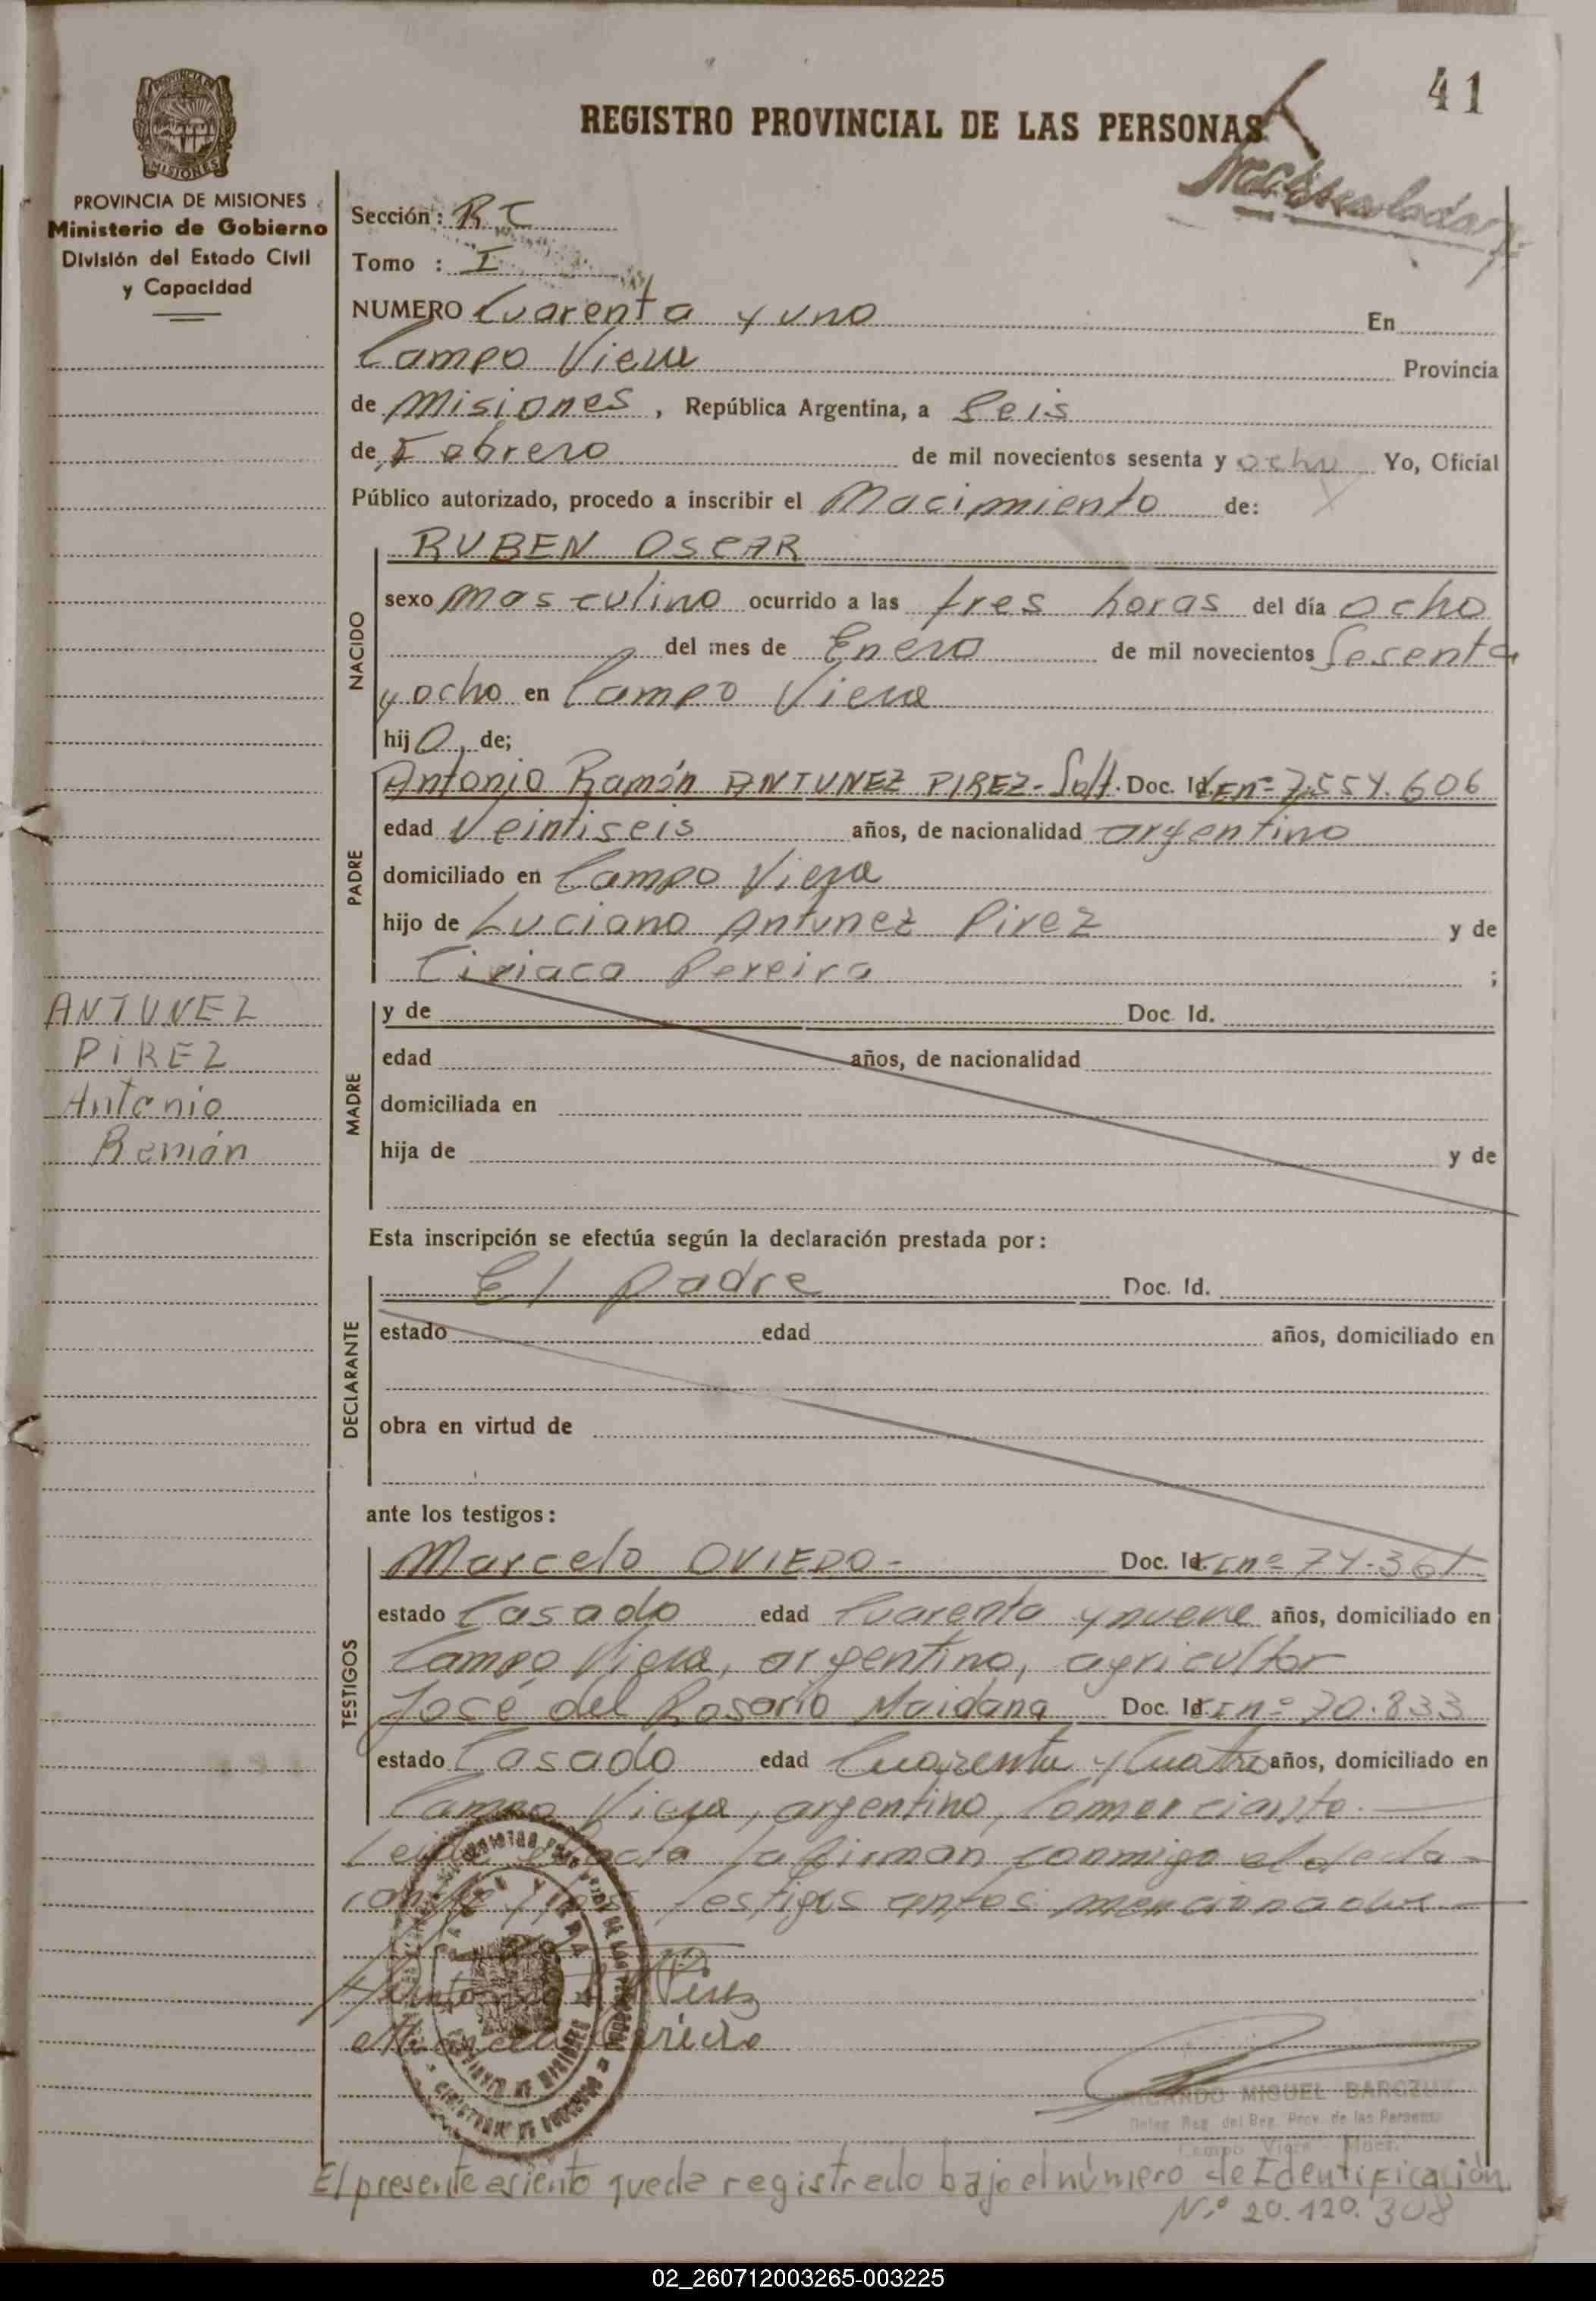 41
REGISTRO PROVINCIAL DE LAS PERSONAS
MISIONES
PROVINCIA DE MISIONES
Ministerio de Gobierno
División del Estado Civil
y Capacidad
Sección: RC
Tomo : I
NUMERO Cuarenta y uno En
Campo Viera Provincia
de Misiones, República Argentina, a Seis
de Febrero de mil novecientos sesenta y ocho Yo, Oficial
Público autorizado, procedo a inscribir el Nacimiento de:
NACIDO
RUBEN OSCAR
sexo masculino ocurrido a las tres horas del día ocho
del mes de Enero de mil novecientos Sesenta
y ocho en Campo Viera
hij o, de;
PADRE
Antonio Ramón ANTUNEZ PIREZ- Solt. Doc. Id. nº 7.554.606
edad Veintiseis años, de nacionalidad argentino
domiciliado en Campo Viera
hijo de Luciano Antunez Pirez y de
Ciriaca Pereira ;
ANTUNEZ
PIREZ
Antonio
Ramón
MADRE
y de Doc. Id.
edad años, de nacionalidad
domiciliada en
hija de y de
Esta inscripción se efectúa según la declaración prestada por:
DECLARANTE
El padre Doc. Id.
estado edad años, domiciliado en
obra en virtud de
ante los testigos:
TESTIGOS
Marcelo OVIEDO- Doc. Id. nº 74.361
estado Casado edad Cuarenta y nueve años, domiciliado en
Campo Viera, argentino, agricultor
José del Rosario Maidana Doc. Id. nº 70.833
estado Casado edad Cuarenta y Cuatro años, domiciliado en
Campo Viera, argentino, Comerciante.
Leida el acta la firman conmigo el decla-
rante y los testigos antes mencionados
Pirez
Oviedo
RICARDO MIGUEL
Deleg. Reg. del Reg. Prov. de las Personas
Campo Viera
El presente asiento queda registrado bajo el número de Identificación
Nº 20.120.308
02_260712003265-003225